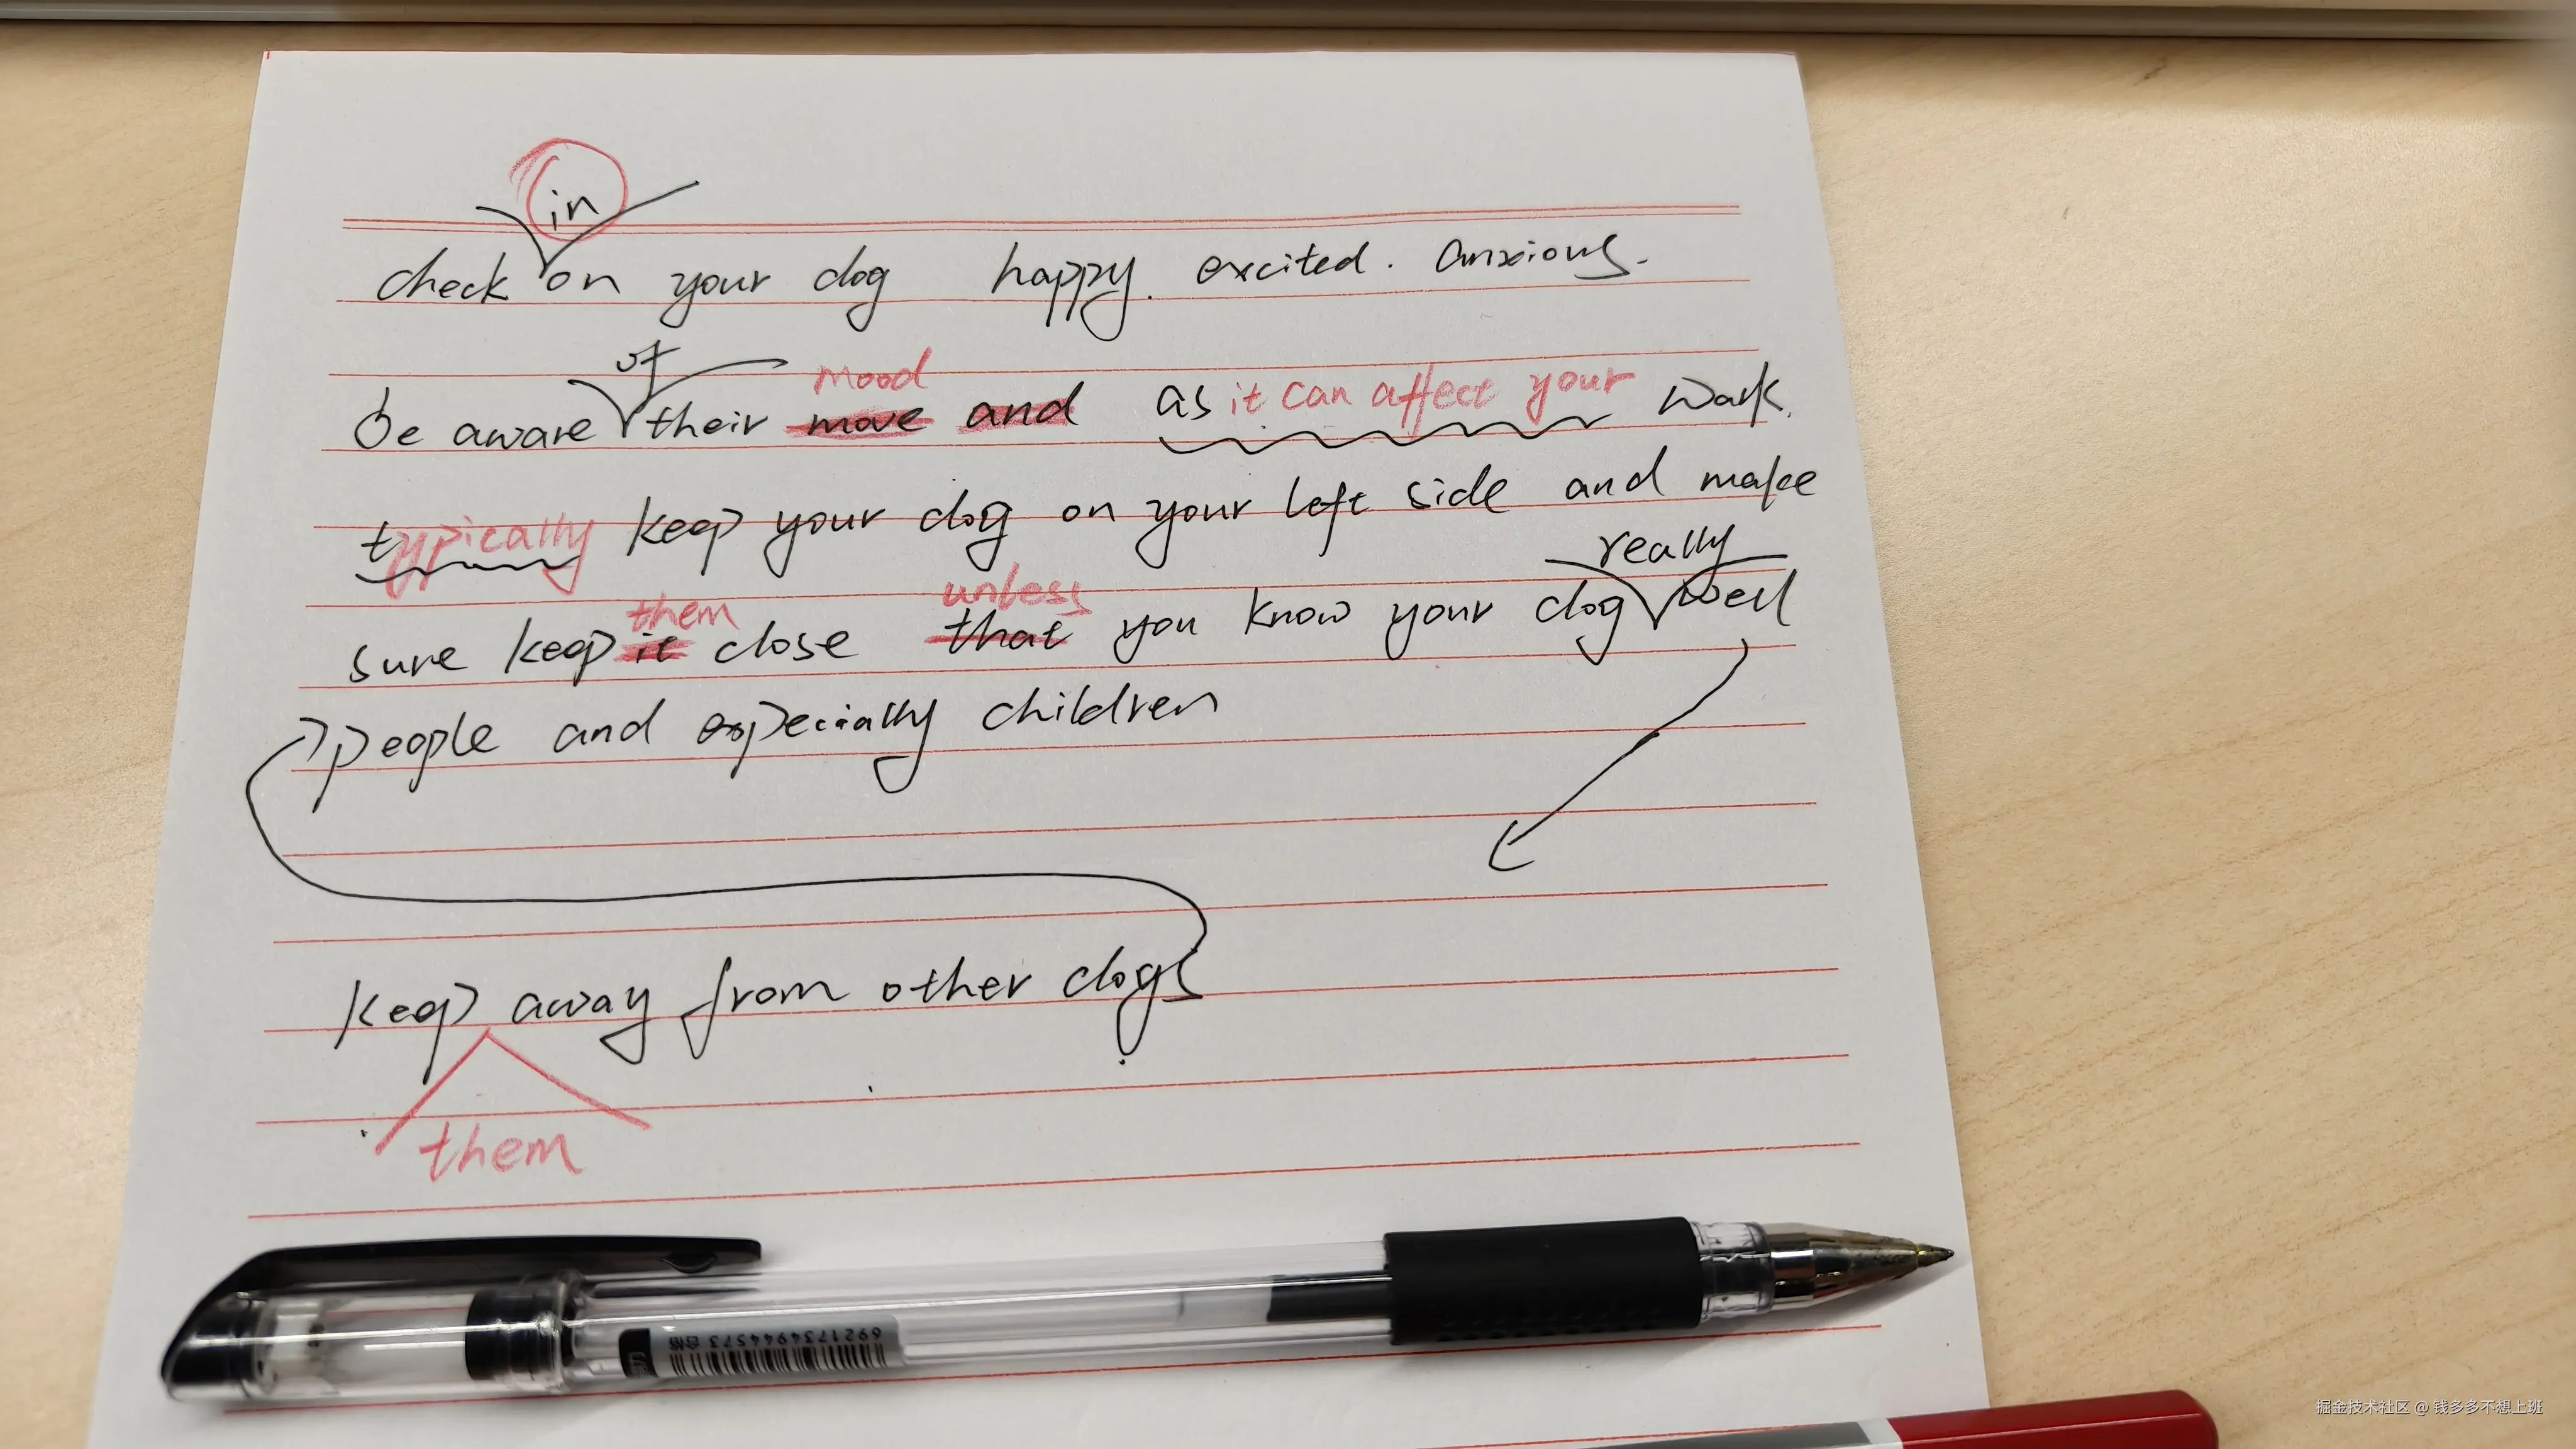 in
check on your dog happy. excited. anxious.
of mood
be aware their move and as it can affect your walk.
typically keep your dog on your left side and make
them unless really
sure keep it close that you know your dog well
people and especially children
keep away from other dogs
them
6921734944573
掘金技术社区 @ 钱多多不想上班